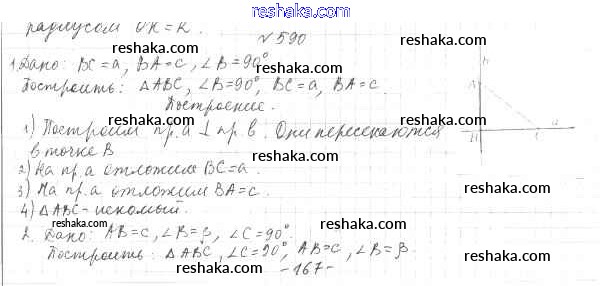 радиусом OK=R.
reshaka.com
№590
1. Дано: BC=a, BA=c, ∠B=90°
Построить: △ABC, ∠B=90°, BC=a, BA=c.
Построение.
1) Построим пр.a ⊥ пр b. Они пересекаются
в точке B
2) На пр.a отложим BC=a.
3) На пр.a отложим BA=c.
4) △ABC - искомый.
2. Дано: AB=c, ∠B=β, ∠C=90°.
Построить: △ABC, ∠C=90°, AB=c, ∠B=β.
-167-
A
a
reshaka.com
reshaka.com
reshaka.com
reshaka.com
reshaka.com
reshaka.com
reshaka.com
reshaka.com
reshaka.com
reshaka.com
reshaka.com